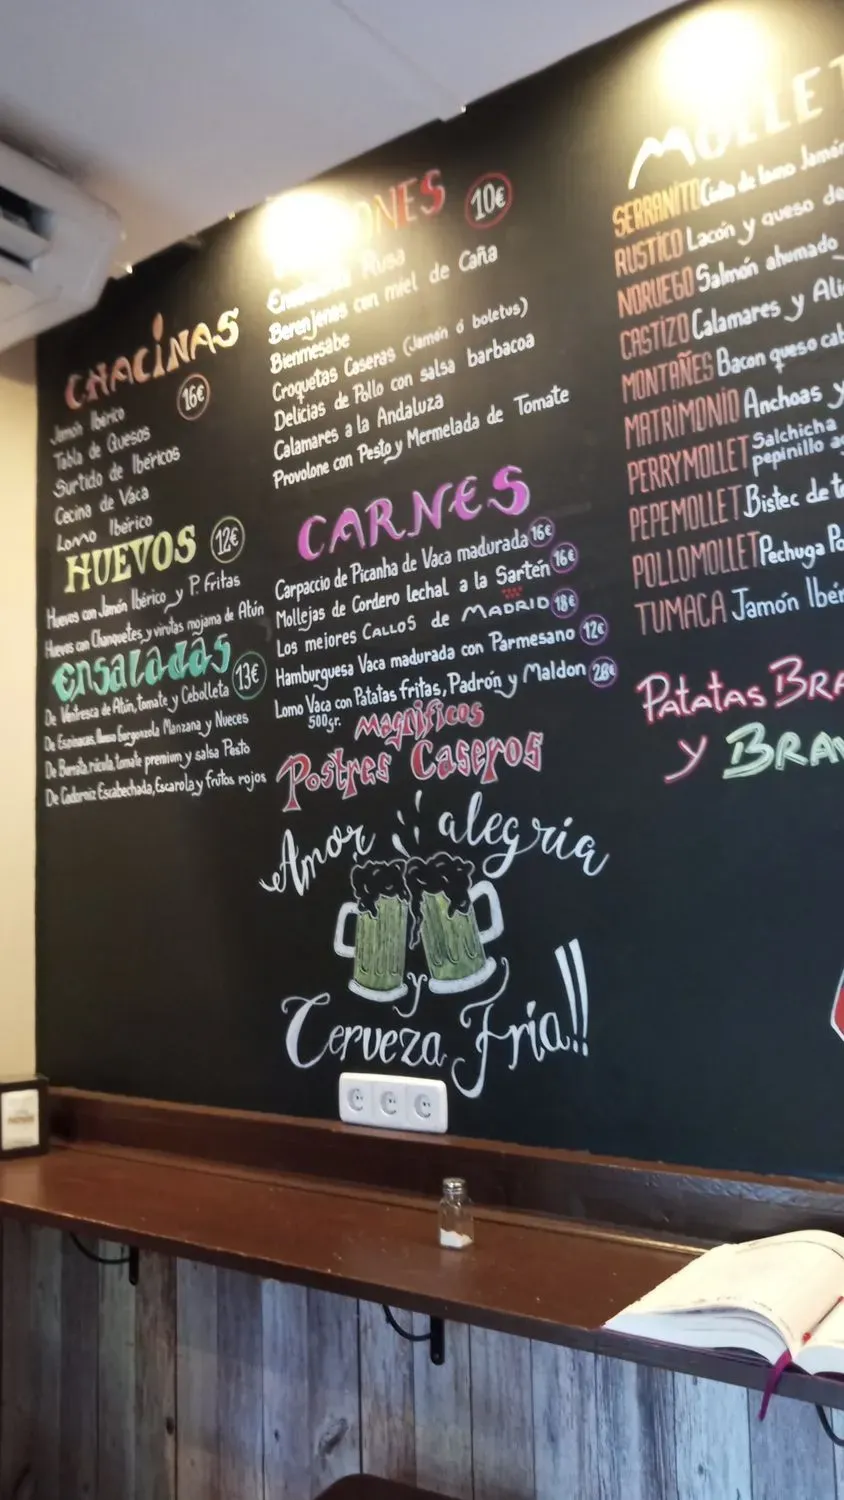 CHACINAS
16€
Jamón Ibérico
Tabla de Quesos
Surtido de Ibéricos
Cecina de Vaca
Lomo Ibérico
HUEVOS 12€
Huevos con Jamón Ibérico y P. Fritas
Huevos con Chanquetes y virutas mojama de Atún
ENSALADAS 13€
De Ventresca de Atún, tomate y Cebolleta
De Espinacas, Gorgonzola Manzana y Nueces
De Burrata, rúcula, tomate premium y salsa Pesto
De Codorniz Escabechada, Escarola y frutos rojos
10€
Rusa
Berenjenas con miel de Caña
Bienmesabe
Croquetas Caseras (Jamón ó boletus)
Delicias de Pollo con salsa barbacoa
Calamares a la Andaluza
Provolone con Pesto y Mermelada de Tomate
CARNES
Carpaccio de Picanha de Vaca madurada 16€
Mollejas de Cordero lechal a la Sartén 16€
Los mejores CALLOS de MADRID 18€
Hamburguesa Vaca madurada con Parmesano 12€
Lomo Vaca con Patatas fritas, Padrón y Maldon 28€
500gr.
Magníficos
Postres Caseros
Amor alegria
y
Cerveza Fria!!
MOLLET
SERRANITO Cinta de lomo Jamón
RUSTICO Lacón y queso de
NORUEGO Salmón ahumado
CASTIZO Calamares y Ali
MONTAÑES Bacon queso cab
MATRIMONIO Anchoas y
PERRYMOLLET Salchicha
pepinillo
PEPEMOLLET Bistec de te
POLLOMOLLET Pechuga Po
TUMACA Jamón Ibér
PATATAS BRA
Y BRAV